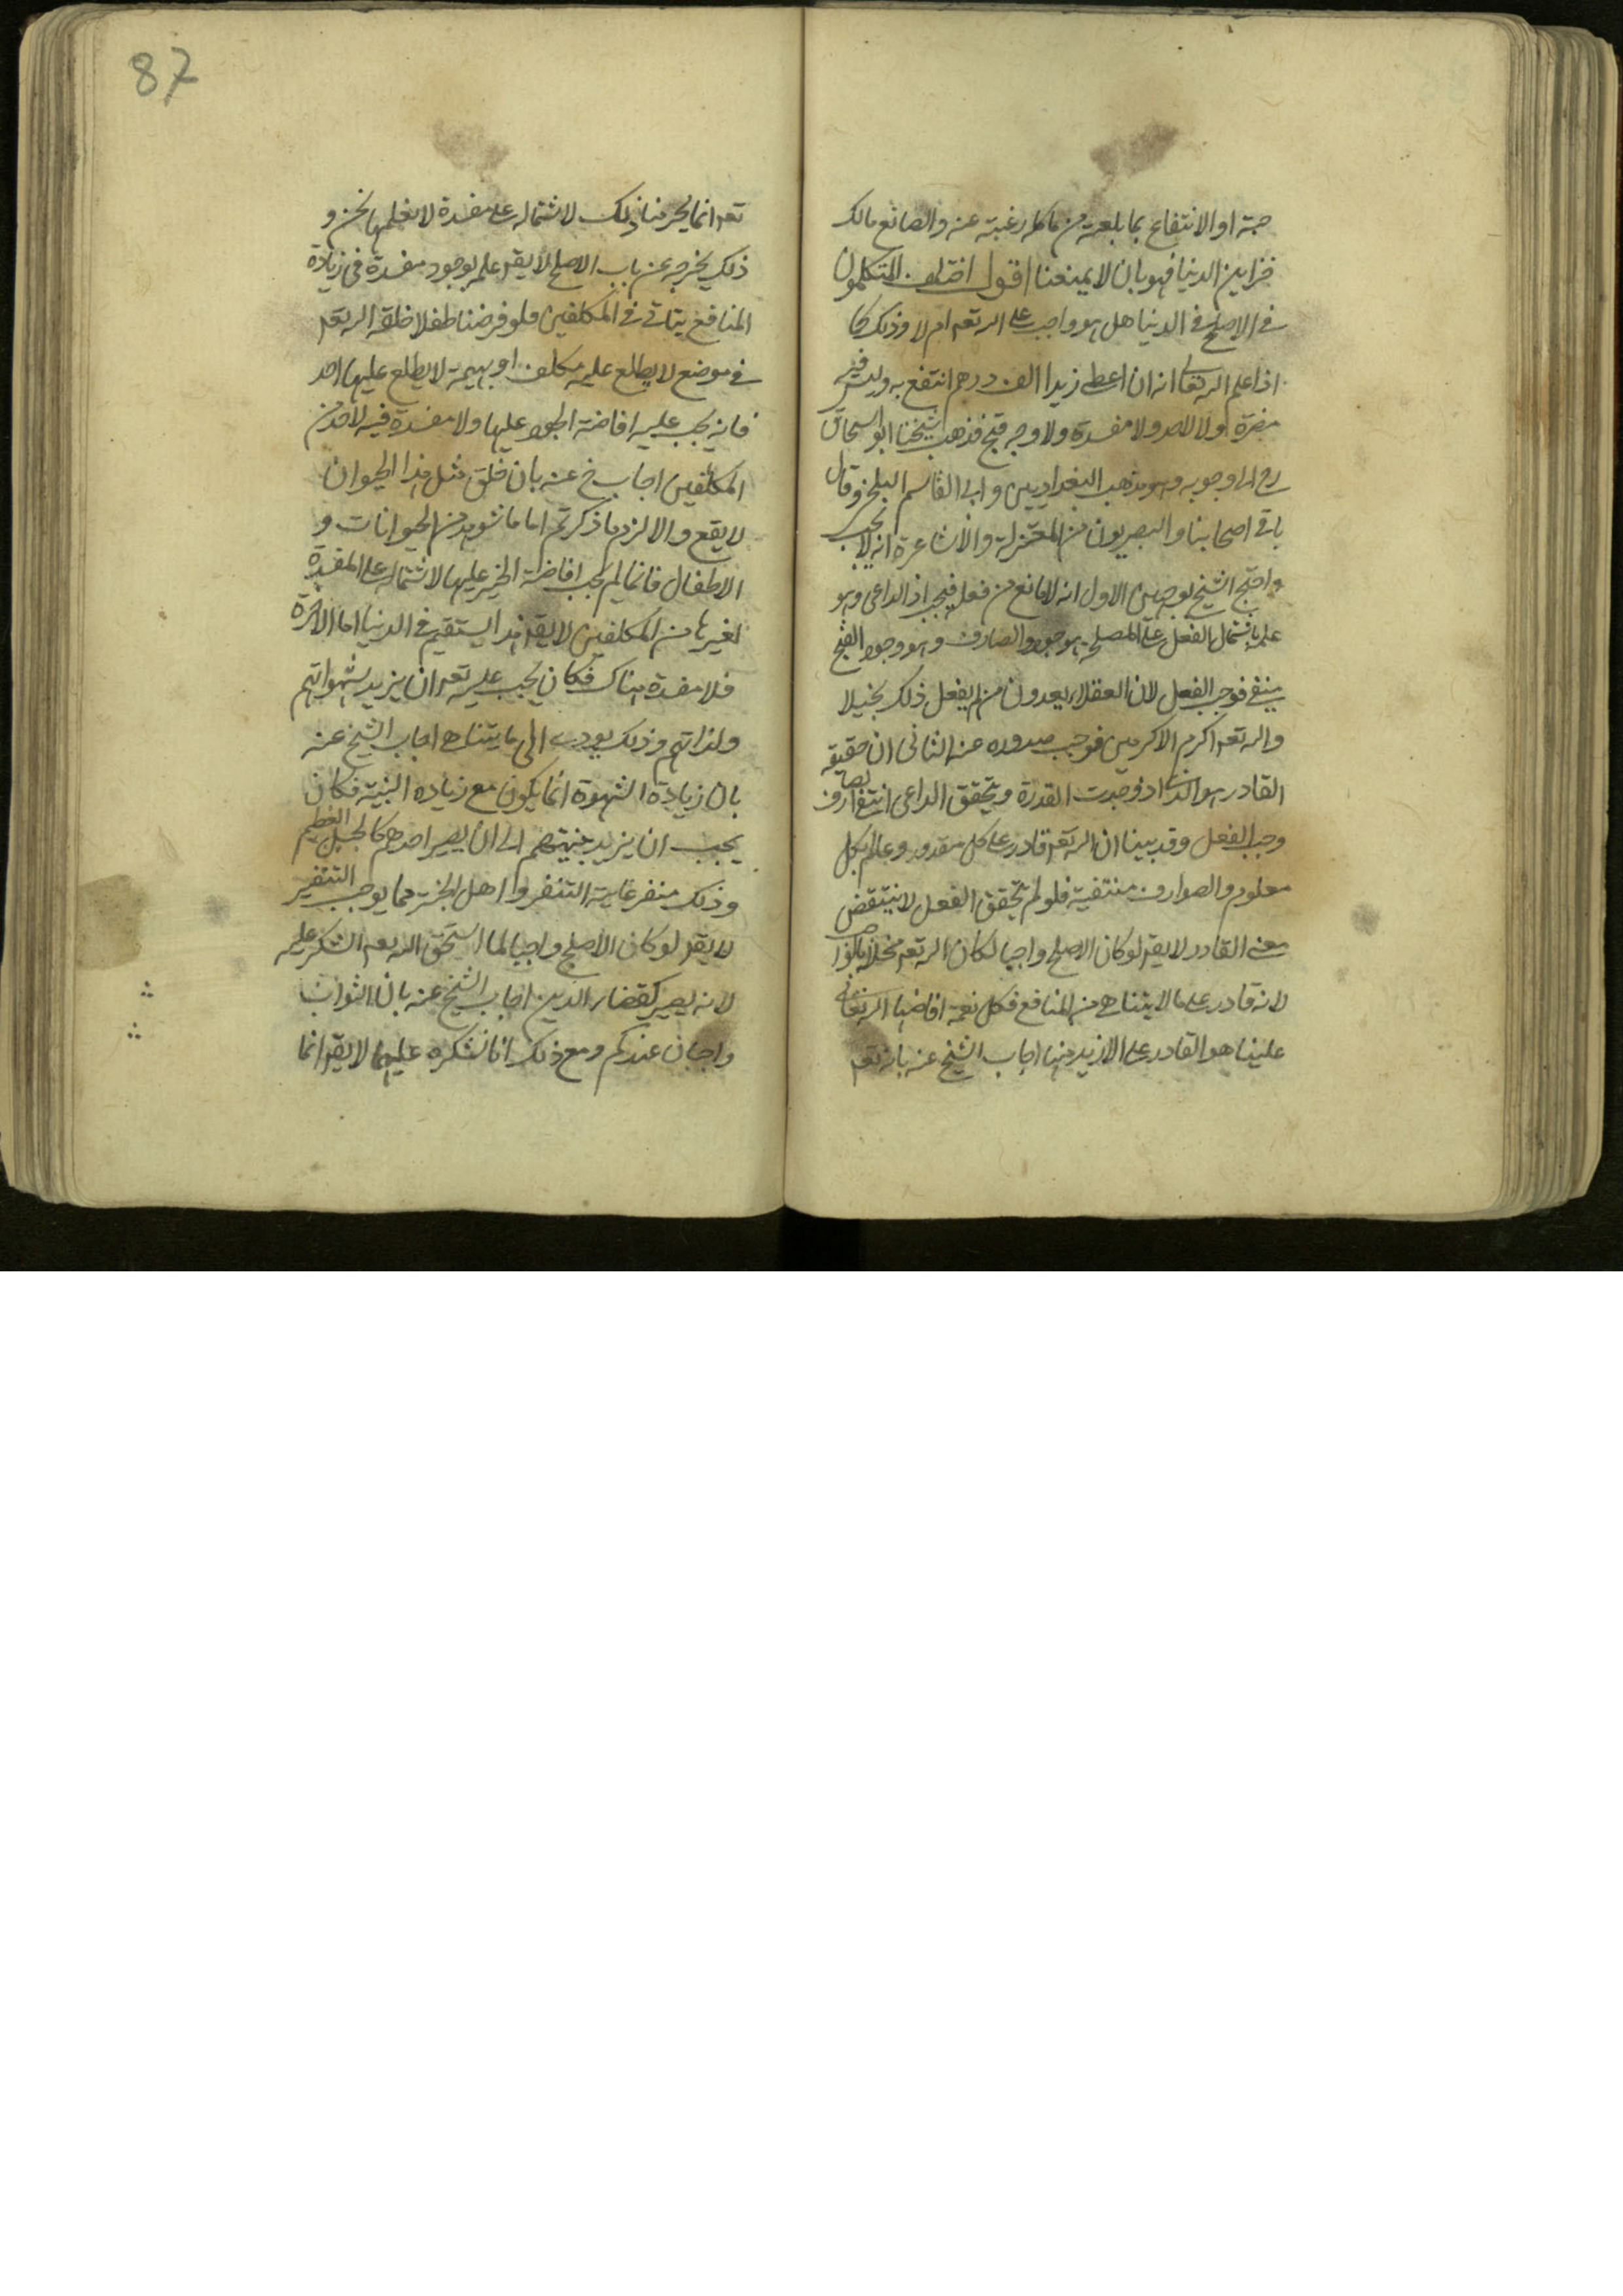 حبة او الانتفاع بما بلعته من ماكله رغبته عنه والصانع مالك
خزاين الدنيا فهو بان لا يمنعنا اقول اختلف المتكلمون
في الاصلح في الدنيا هل هو واجب على الله تعم ام لا وذلك كما
اذا علم الله تعالى انه ان اعطى زيدا الف درهم انتفع به وليس فيه
مضرة ولا لاحد ولا مفسدة ولا وجه قبح فذهب شيخنا ابو اسحاق
رح الى وجوبه وهو مذهب البغداديين وابي القاسم البلخي وقال
باقي اصحابنا والبصريون من المعتزلة والاشاعرة انه لا يجب
واحتج الشيخ بوجهين الاول انه لا مانع من فعله فيجب اذ الداعي وهو
علمه باشتمال الفعل على المصلحة موجود والصارف وهو وجود القبح
منتفي فوجب الفعل لان العقلاء يعدون من لم يفعل ذلك بخيلا
والله تعم اكرم الاكرمين فوجب صدوره عنه الثاني ان حقيقة
القادر هو الذي اذ وجدت القدرة وتحقق الداعي انتفا الصارف
وجب الفعل وقد بينا ان الله تعم قادر على كل مقدور وعالم بكل
معلوم والصوارف منتفية فلو لم يتحقق الفعل لا ينتقض
معنى القادر لا يقم لو كان الاصلح واجبا لكان الله تعم مخلا بالواجب
لانه قادر على ما لا يتناهى من المنافع فكل نعمة افاضها الله تعالى
علينا هو القادر على الازيد منها اجاب الشيخ عنه بانه تعم
87
تعم انما يحرمنا ذلك لاشتماله على مفسدة لا يعلمها نحن و
ذلك يخرجه عن باب الاصلح لا يقم علمه بوجود مفسدة في زيادة
المنافع يتاتى في المكلفين فلو فرضنا طفلا خلقه الله تعم
في موضع لا يطلع عليه مكلف او بهيمة لا يطلع عليها احد
فانه يجب عليه افاضة الجود عليها ولا مفسدة فيه لاحد من
المكلفين اجاب خ عنه بان خلق مثل هذا الحيوان
لا يقع والا لزم ما ذكرتم اما ما نشوهد من الحيوانات و
الاطفال فانما لم يجب افاضة الخير عليها لاشتماله على المفسدة
لغيرها من المكلفين لا يقم هذا يستقيم في الدنيا اما الاخرة
فلا مفسدة هناك فكان يجب عليه تعم ان يزيد شهواتهم
ولذاتهم وذلك يودي الى ما يتناهى اجاب الشيخ عنه
بان زيادة الشهوة انما يكون مع زياده البنية فكان
يجب ان يزيد بنيتهم الى ان يصير احدهم كالجبل العظيم
وذلك منفر غاية التنفر واهل الجنة مما يوجب التنفير
لا يقم لو كان الاصلح واجبا لما استحق الله تعم الشكر عليه
لانه يصير كقضاء الدين اجاب الشيخ عنه بان الثواب
واجبان عندكم ومع ذلك انا نشكره عليهما لا يقم انما